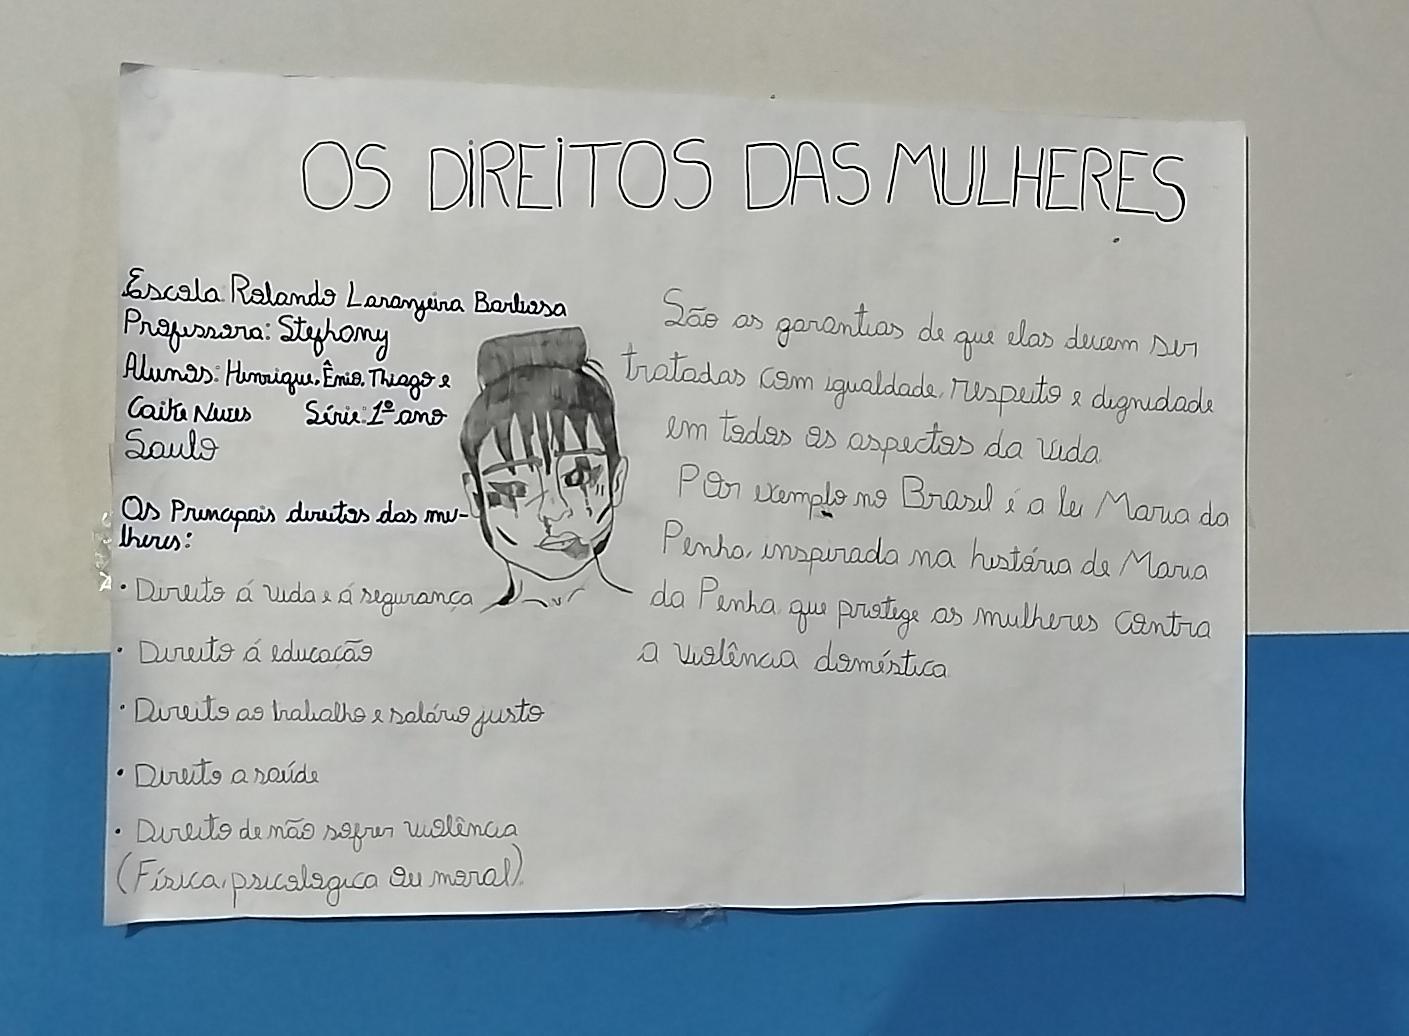 OS DIREITOS DAS MULHERES
Escola Rolando Laranjeira Barbosa
Professora: Stephany
Alunos: Henrique, Ênio, Thiago e
Caike Nunes Série: 1º ano
Saulo
Os Principais direitos das mu-
lheres:
• Direito á vida e á segurança
• Direito á educação
• Direito ao trabalho e salário justo
• Direito a saúde
• Direito de não sofrer violência
(Física, psicologica ou moral)
São as garantias de que elas devem ser
tratadas com igualdade, respeito e dignidade
em todos os aspectos da vida
Por exemplo no Brasil é a lei Maria da
Penha, inspirada na história de Maria
da Penha que protege as mulheres contra
a violência doméstica